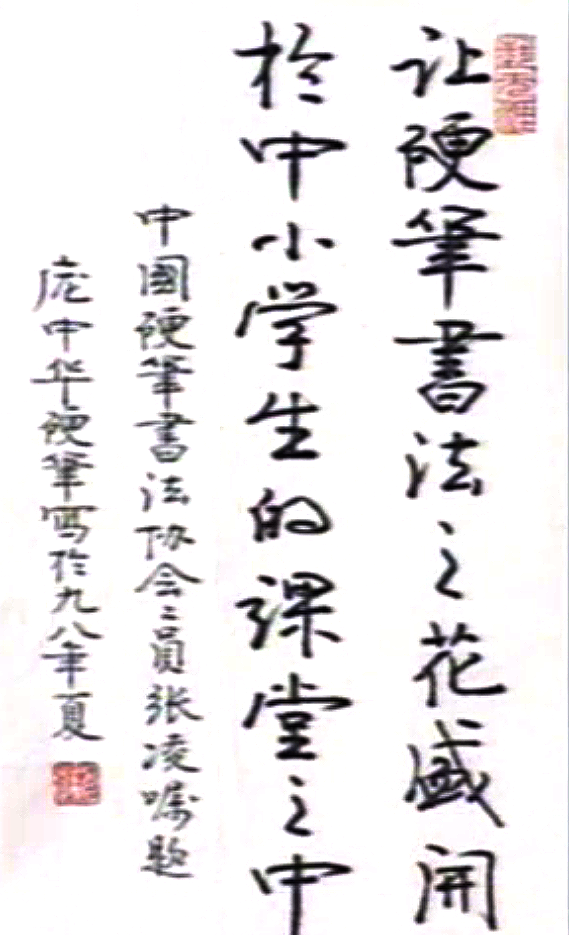 让硬筆書法之花盛開
於中小学生的課堂之中
中國硬筆書法协会会員张凌嘱题
庞中华硬筆寫於九八年夏